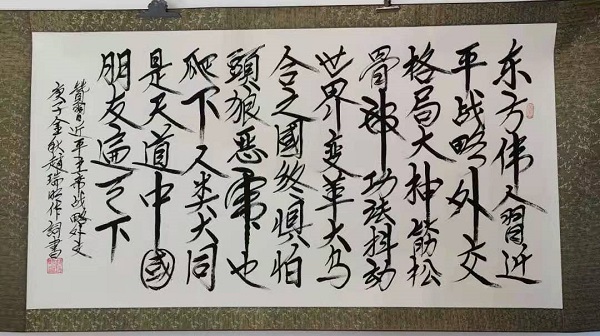 东方伟人習近
平战略外交
格局大抽筋松
骨神功法抖动
世界变革大乌
合之國惧怕
頭狼恶也
爬下人类大同
是天道中國
朋友遍天下
赞習近平主席战略外交
庚子金秋赵瑞作詞書